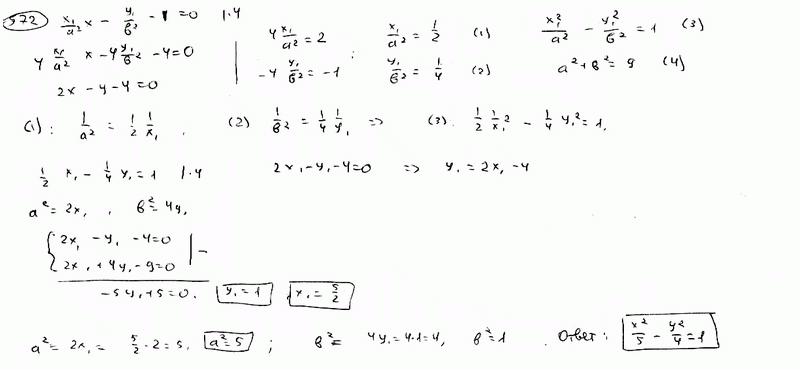 572 x₁/a² x - y₁/b² - 1 = 0 | · 4
4 x₁/a² x - 4 y₁/b² - 4 = 0
2x - y - 4 = 0
4 x₁/a² = 2
-4 y₁/b² = -1 ;
x₁/a² = 1/2 (1)
y₁/b² = 1/4 (2)
x₁²/a² - y₁²/b² = 1 (3)
a² + b² = 9 (4)
(1): 1/a² = 1/2 1/x₁ , (2) 1/b² = 1/4 1/y₁ => (3). 1/2 1/x₁² - 1/4 y₁² = 1,
1/2 x₁ - 1/4 y₁ = 1 | · 4 2x₁ - y₁ - 4 = 0 => y₁ = 2x₁ - 4
a² = 2x₁ , b² = 4y₁
2x₁ - y₁ - 4 = 0 | -
2x₁ + 4y₁ - 9 = 0
-5y₁ + 5 = 0. y₁ = 1 x₁ = 5/2
a² = 2x₁ = 5/2 · 2 = 5. a² = 5 ; b² = 4y₁ = 4·1 = 4, b² = 1 . Ответ: x²/5 - y²/4 = 1